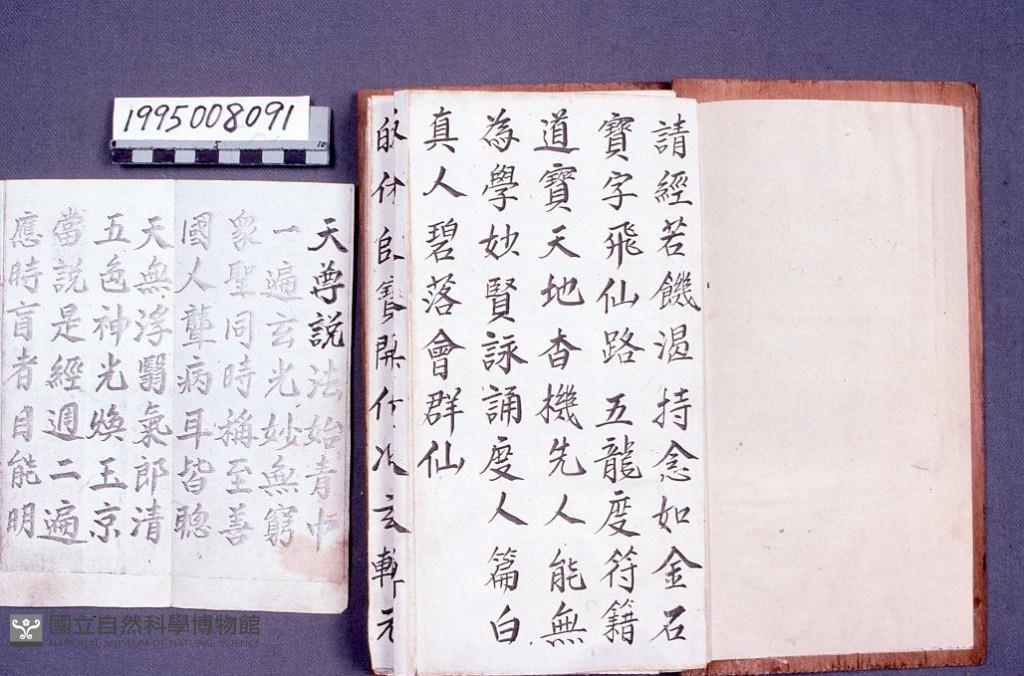 1995008091
5
10
請經若饑渴持念如金石
寶字飛仙路五龍度符籍
道寶天地杳機先人能無
為學妙賢詠誦度人篇白
真人碧落會群仙
天尊說法始青中
一遍玄光妙無窮
衆聖同時稱至善
國人聾病耳皆聰
天無浮翳氣郎清
五色神光煥玉京
當說是經週二遍
應時盲者目能明
國立自然科學博物館
NATIONAL MUSEUM OF NATURAL SCIENCE